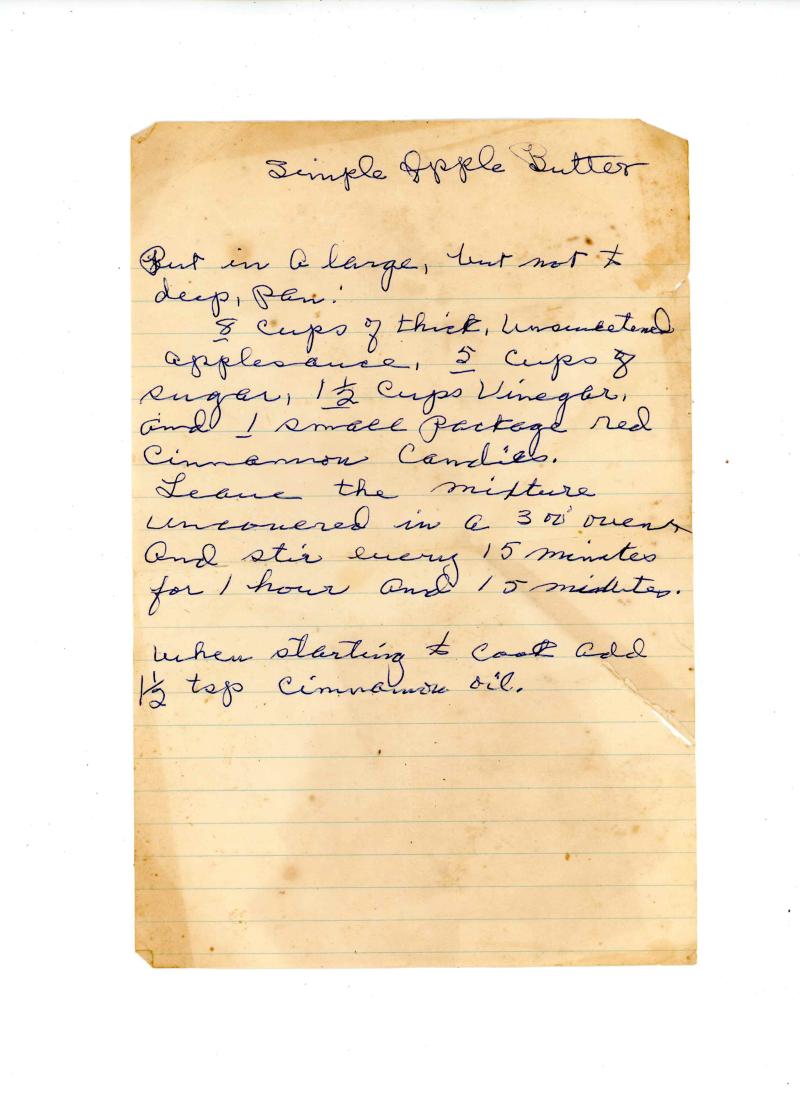 Simple Apple Butter
Put in a large, but not to
deep, pan:
8 cups of thick, unsweetened
applesauce, 5 cups of
sugar, 1 1/2 cups Vinegar,
and 1 small package red
Cinnamon Candies.
Leave the mixture
uncovered in a 300° oven
and stir every 15 minutes
for 1 hour and 15 minutes.
when starting to cook add
1 1/2 tsp cinnamon oil.